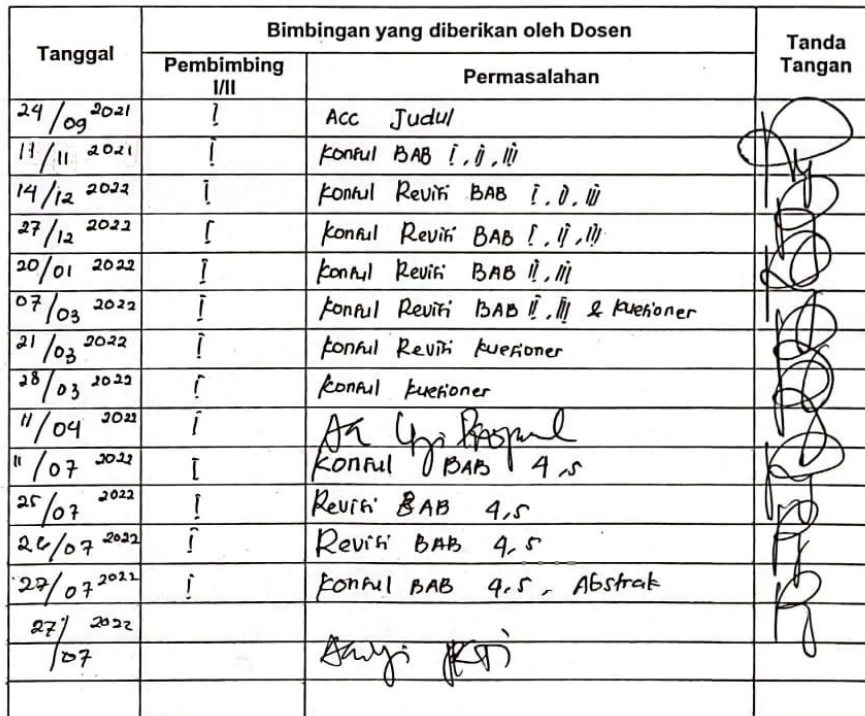 Tanggal
Bimbingan yang diberikan oleh Dosen
Tanda
Tangan
Pembimbing
I/II
Permasalahan
24/09 2021 I Acc Judul
11/11 2021 I Konsul BAB I, II, III
14/12 2022 I Konsul Revisi BAB I, II, III
27/12 2022 I Konsul Revisi BAB I, II, III
20/01 2022 I Konsul Revisi BAB II, III
07/03 2022 I Konsul Revisi BAB II, III & Kuesioner
21/03 2022 I Konsul Revisi Kuesioner
28/03 2022 I Konsul Kuesioner
11/04 2022 I
11/07 2022 I Konsul BAB 4,5
25/07 2022 I Revisi BAB 4,5
26/07 2022 I Revisi BAB 4,5
27/07 2022 I Konsul BAB 4,5, Abstrak
27/07 2022